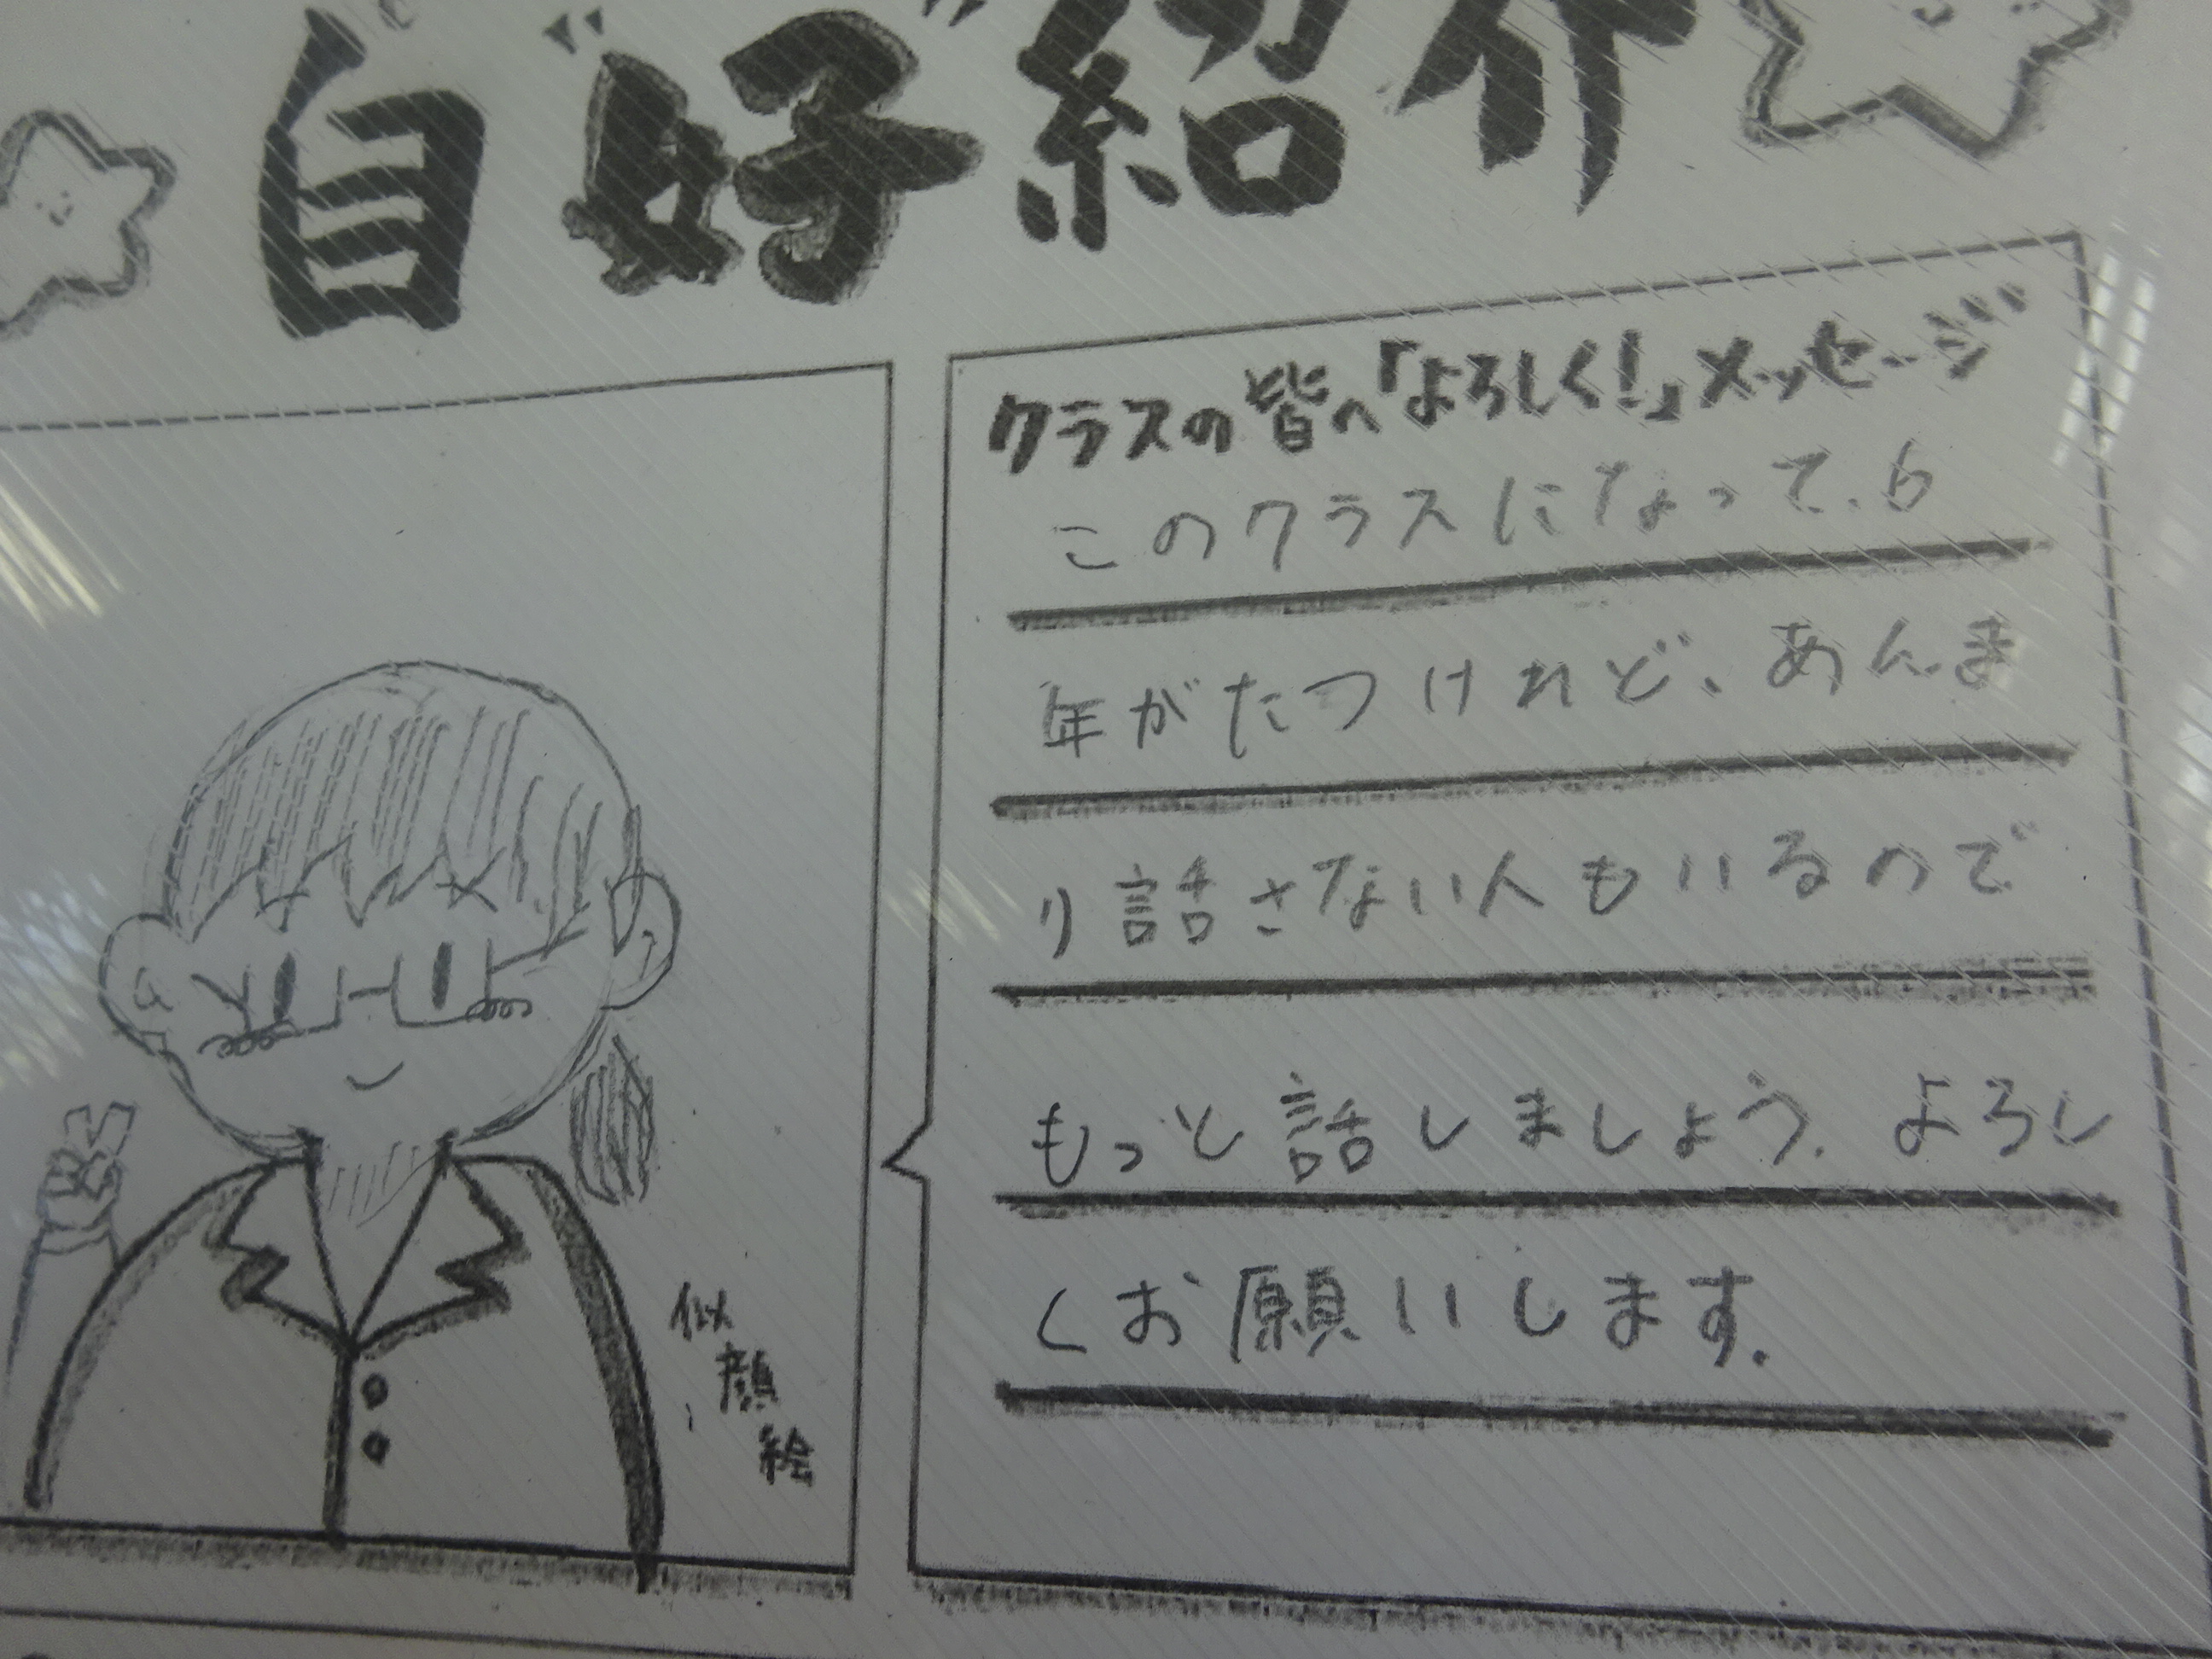 自好紹介
クラスの皆へ「よろしく!」メッセージ
このクラスになって、6
年がたつけれど、あんま
り話さない人もいるので
もっと話しましょう。よろし
くお願いします。
似
顔
絵